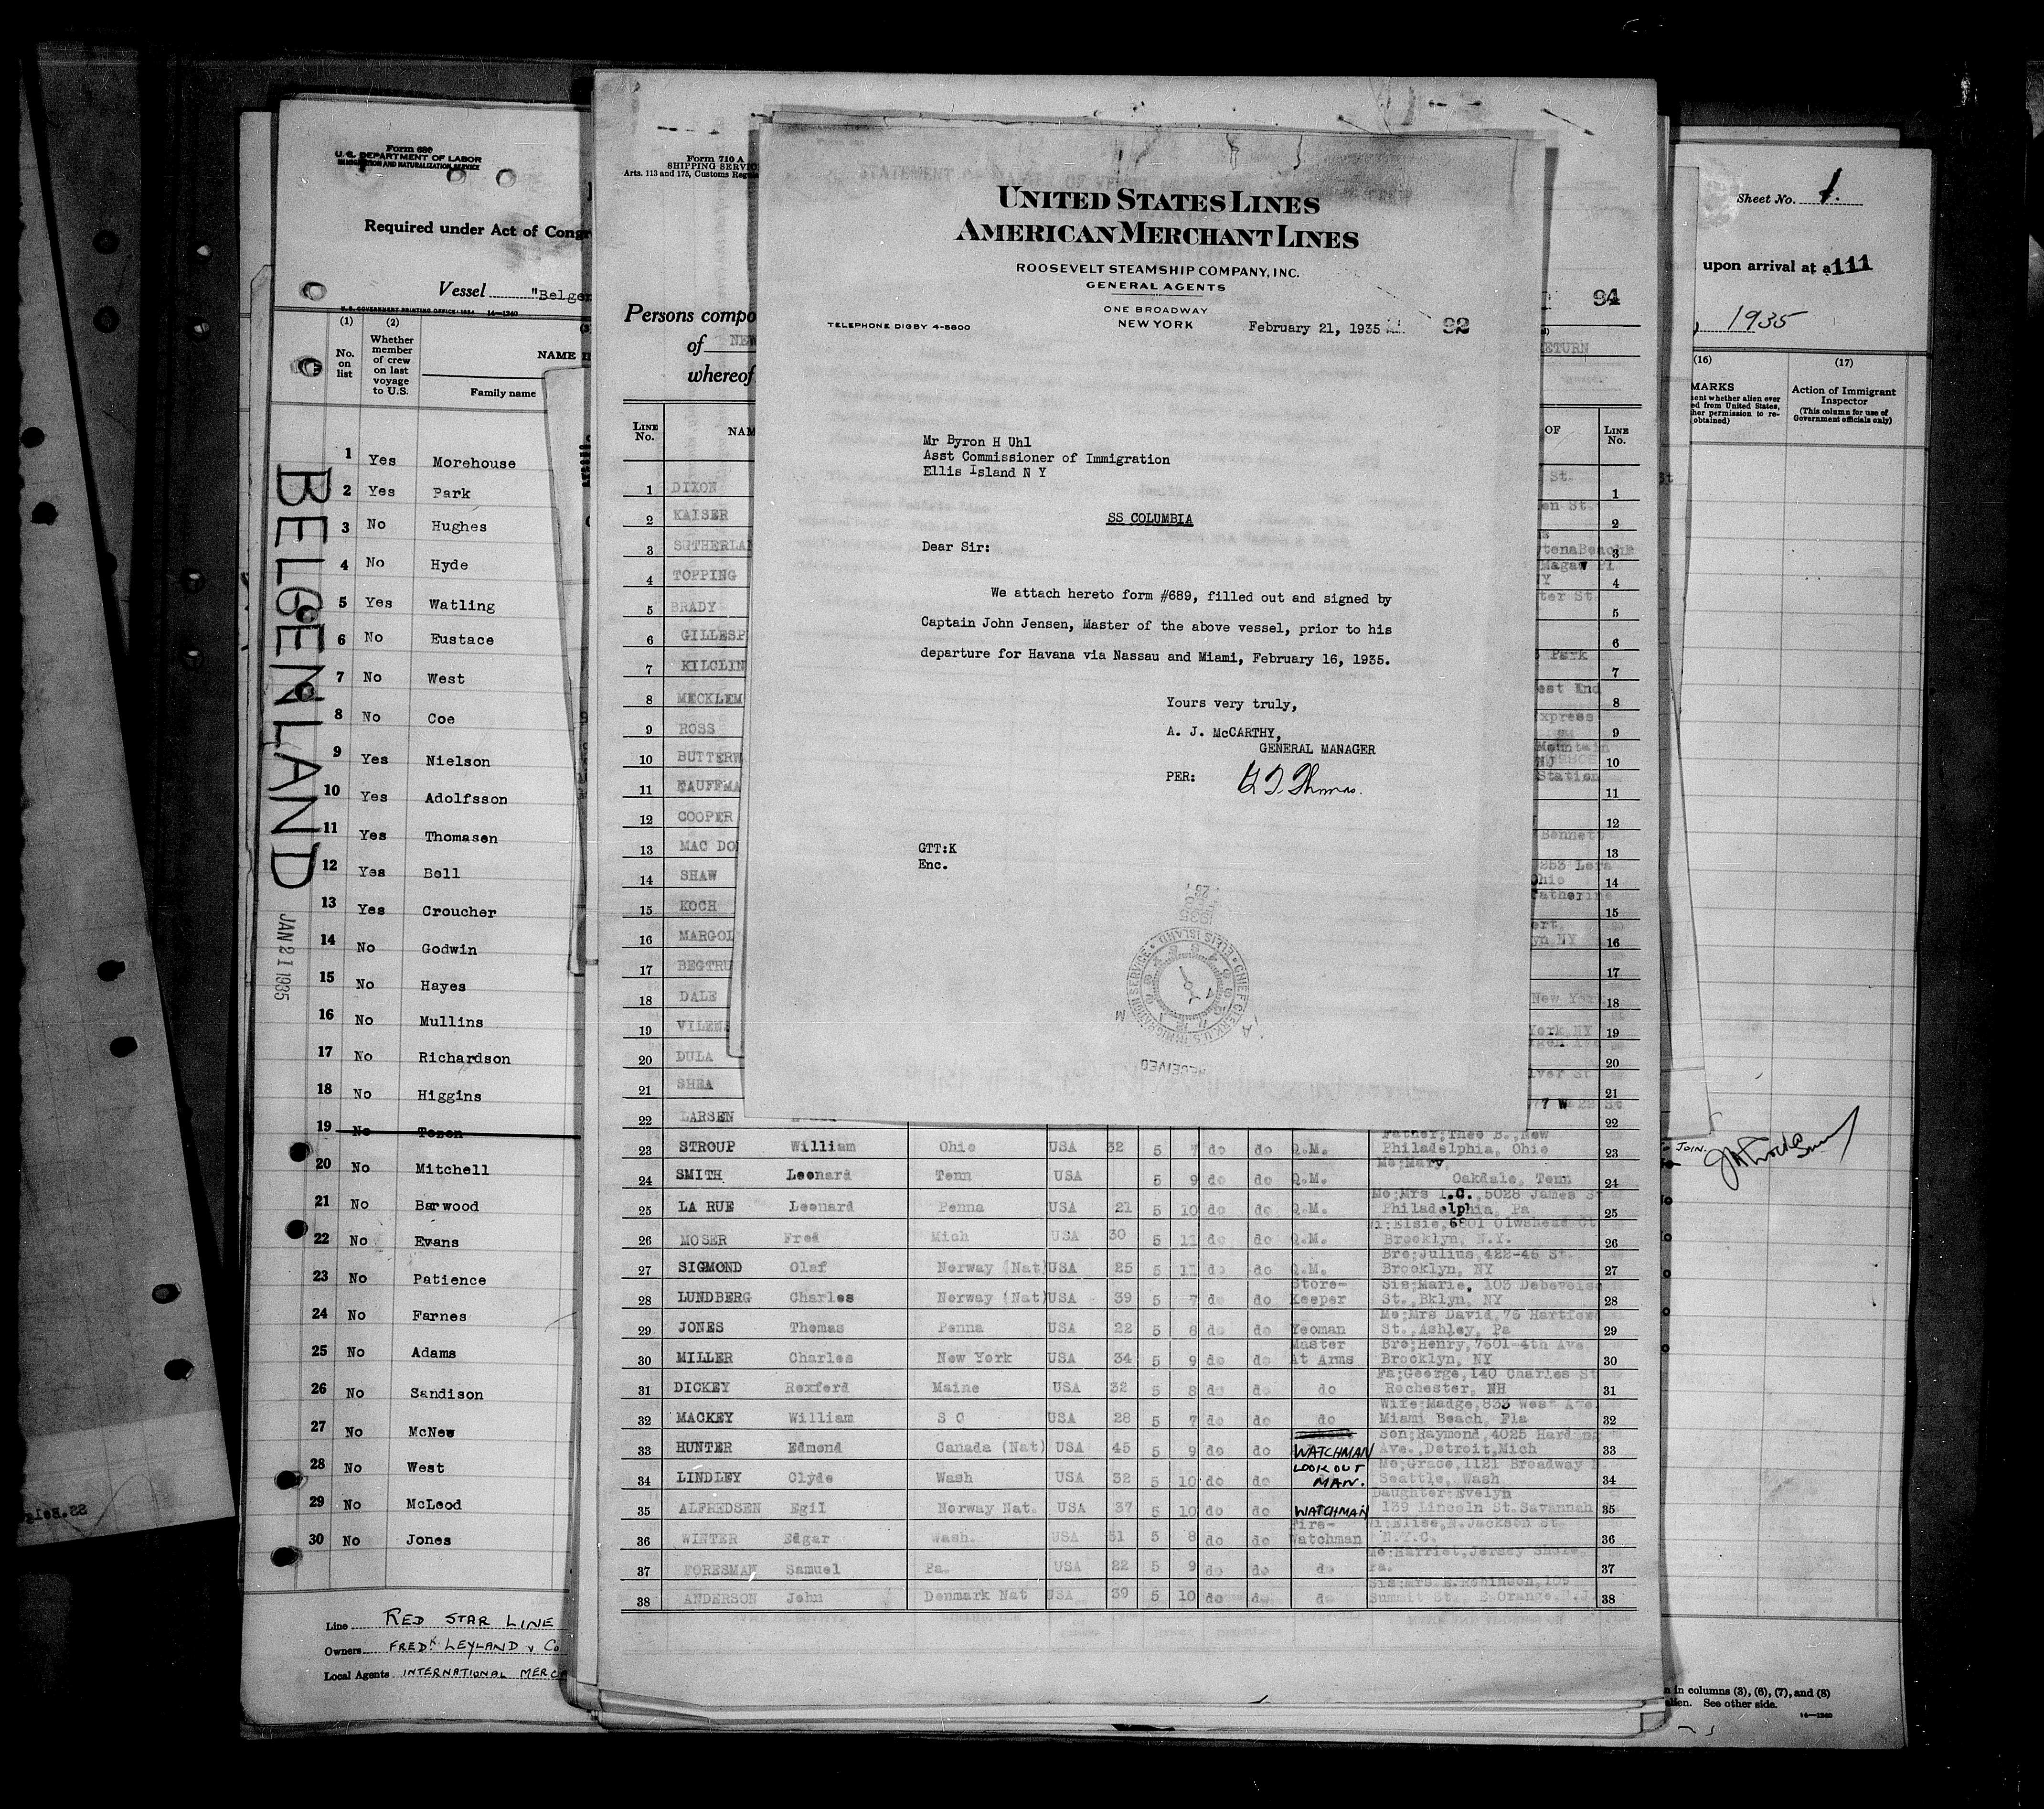 Form 680
U. S. DEPARTMENT OF LABOR
IMMIGRATION AND NATURALIZATION SERVICE
Required under Act of Congr
Vessel "Belgen
U. S. GOVERNMENT PRINTING OFFICE: 1934 14—1240
(1) (2)
No. on list
Whether member of crew on last voyage to U.S.
NAME I
Family name
BELGENLAND
JAN 21 1935
1 Yes Morehouse
2 Yes Park
3 No Hughes
4 No Hyde
5 Yes Watling
6 No Eustace
7 No West
8 No Coe
9 Yes Nielson
10 Yes Adolfsson
11 Yes Thomasen
12 Yes Bell
13 Yes Croucher
14 No Godwin
15 No Hayes
16 No Mullins
17 No Richardson
18 No Higgins
19 No
20 No Mitchell
21 No Barwood
22 No Evans
23 No Patience
24 No Farnes
25 No Adams
26 No Sandison
27 No McNew
28 No West
29 No McLeod
30 No Jones
Line RED STAR LINE
Owners FREDK LEYLAND & Co
Local Agents INTERNATIONAL MERCA
SS.Belg
Form 710 A
SHIPPING SERVIC
Arts. 113 and 175, Customs Regu
94
Persons compo
of NEW
whereof
ETURN
LINE No.
NAM
OF
LINE No.
1 DIXON St. 1
2 KAISER en St. 2
3 SUTHERLAN ytonaBeach 3
4 TOPPING Magaw Pl 4
5 BRADY ter St. 5
6 GILLESP 6
7 KILCLIN Park 7
8 MECKLEM est End 8
9 ROSS xpress 9
10 BUTTERW Mountain NJ 10
11 KAUFFMA Station 11
12 COOPER 12
13 MAC DO Bennett 13
14 SHAW Ohio 14
15 KOCH Catherine 15
16 MARGOL yn NY 16
17 BEGTRU 17
18 DALE New York 18
19 VILENS York, NY 19
20 DULA 20
21 SHEA lver St 21
22 LARSEN 22
23 STROUP William Ohio USA 32 5 7 do do Q.M. Father;Theo B.,New Philadelphia, Ohio 23
24 SMITH Leonard Tenn USA 5 9 do do Q.M. Mo;Mary, Oakdale, Tenn 24
25 LA RUE Leonard Penna USA 21 5 10 do do Q.M. Mo;Mrs I.C.,5028 James St Philadelphia, Pa 25
26 MOSER Fred Mich USA 30 5 11 do do Q.M. Wi:Elsie,6801 Olmshead Ct Brooklyn, N.Y. 26
27 SIGMOND Olaf Norway (Nat) USA 25 5 11 do do Q.M. Bro;Julius,422-45 St. Brooklyn, NY 27
28 LUNDBERG Charles Norway (Nat) USA 39 5 7 do do Store-Keeper Sis;Marie, 103 Debevoise St.,Bklyn, NY 28
29 JONES Thomas Penna USA 22 5 8 do do Yeoman Mo;Mrs David,76 Hartford St.,Ashley, Pa 29
30 MILLER Charles New York USA 34 5 9 do do Master At Arms Bro;Henry,7501-4th Ave Brooklyn, NY 30
31 DICKEY Rexford Maine USA 32 5 8 do do do Fa;George,140 Charles St Rochester, NH 31
32 MACKEY William S C USA 28 5 7 do do do Wife;Madge,833 West Ave. Miami Beach, Fla 32
33 HUNTER Edmond Canada (Nat) USA 45 5 9 do do WATCHMAN Son;Raymond,4025 Harding Ave.,Detroit,Mich 33
34 LINDLEY Clyde Wash USA 32 5 10 do do LOOK OUT MAN. Mo;Grace,1121 Broadway N. Seattle, Wash 34
35 ALFREDSEN Egil Norway Nat. USA 37 5 10 do do WATCHMAN Daughter:Evelyn 139 Lincoln St.Savannah 35
36 WINTER Edgar Wash. USA 51 5 8 do do Fire-Watchman Wi:Elise,N.Jackson St N.Y.C. 36
37 FORESMAN Samuel Pa. USA 22 5 9 do do do Mo:Harriet,Jersey Shore, Pa. 37
38 ANDERSON John Denmark Nat USA 39 5 10 do do do Sis:Mrs E.Robinson,109 Summit St. E.Orange,N.J. 38
UNITED STATES LINES
AMERICAN MERCHANT LINES
ROOSEVELT STEAMSHIP COMPANY, INC.
GENERAL AGENTS
ONE BROADWAY
NEW YORK
TELEPHONE DIGBY 4-5800
February 21, 1935
92
Mr Byron H Uhl
Asst Commissioner of Immigration
Ellis Island N Y
SS COLUMBIA
Dear Sir:
We attach hereto form #689, filled out and signed by
Captain John Jensen, Master of the above vessel, prior to his
departure for Havana via Nassau and Miami, February 16, 1935.
Yours very truly,
A. J. McCARTHY,
GENERAL MANAGER
PER: G T Thomas.
GTT:K
Enc.
1935
CHIEF CLERK U.S. IMMIGRATION SERVICE • ELLIS ISLAND •
RECEIVED
Sheet No. 1.
upon arrival at a 111
, 1935
(16) (17)
MARKS
ent whether alien ever
ed from United States,
her permission to re-
obtained)
Action of Immigrant
Inspector
(This column for use of
Government officials only)
JOIN.
n in columns (3), (6), (7), and (8)
alien. See other side.
14—1240